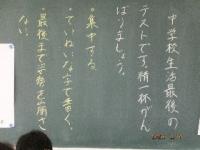 中学校生活最後の
テストです。精一杯がん
ばりましょう。
・集中する。
・ていねいな字で書く。
・最後まで姿勢を崩さ
ない。